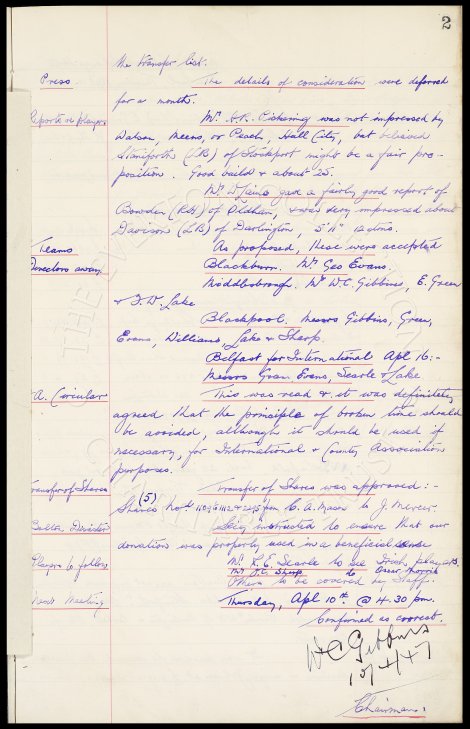 2
the transfer list.
Press
The details of consideration were deferred
for a month.
Reports re players
Mr. H.R. Pickering was not impressed by
Watson, Meens, or Peach, Hull City, but believed
Staniforth (LB) of Stockport might be a fair pro-
position. Good build & about 25.
Mr gave a fairly good report of
Bowden (RH) of Oldham, & was very impressed about
Davison (LB) of Darlington, 5' 11" 12
Teams
As proposed, these were accepted
Directors away.
Blackburn. Mr Geo Evans.
Middlesbrough. Mr W.C. Gibbins, E. Green
& F.W. Lake
Blackpool. Messrs Gibbins, Green,
Evans, Williams, Lake & Sharp.
Belfast for International Apl 16:-
Messrs Evans, Searle & Lake
A. Circular
This was read & it was definitely
agreed that the principle of broken time should
be avoided, although it should be used if
necessary, for International & County Association
purposes.
Transfer of Shares
Transfer of Shares was approved:-
(5)
Shares Nos from C.A. Mason to J. Mercer.
Bolton Disaster
Secy instructed to ensure that our
donation was properly used in a beneficial sense
Players to follow
Mr. R.E. Searle to see Irish players.
Mr J.C. Sharp to
Others to be covered by Staff.
Next Meeting
Thursday, Apl 10th @ 4.30 pm.
Confirmed as correct.
W C Gibbins
Chairman.